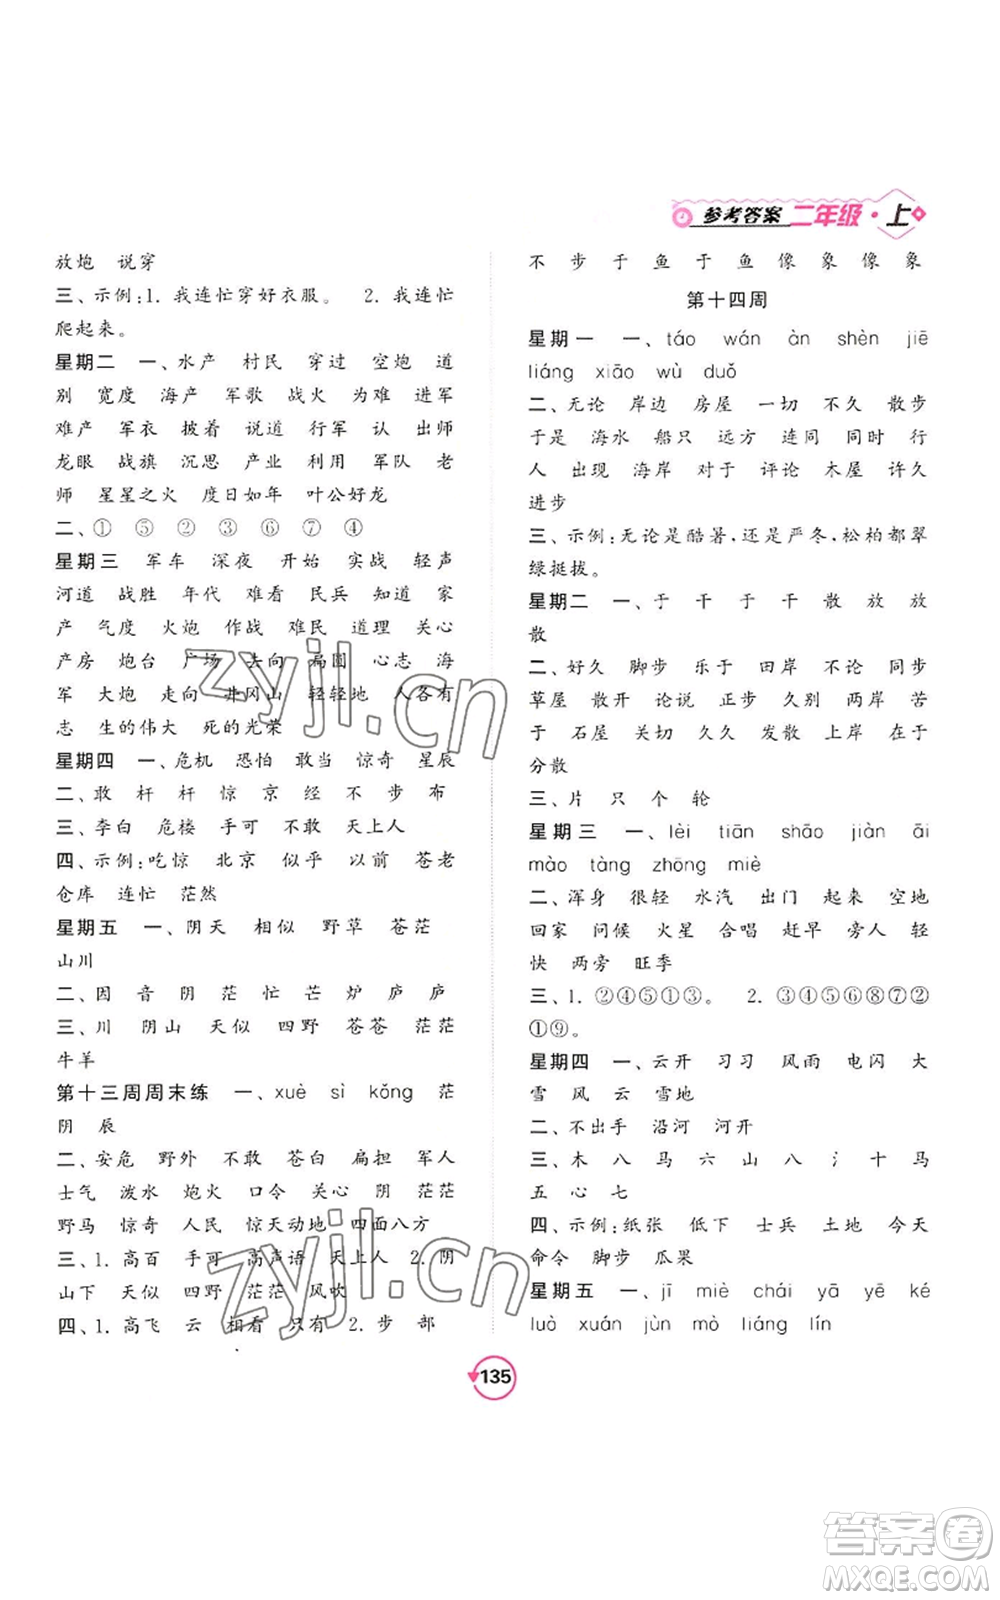 参考答案 二年级·上
放炮 说穿
三、示例:1. 我连忙穿好衣服。 2. 我连忙
爬起来。
星期二 一、水产 村民 穿过 空炮 道
别 宽度 海产 军歌 战火 为难 进军
难产 军衣 披着 说道 行军 认 出师
龙眼 战旗 沉思 产业 利用 军队 老
师 星星之火 度日如年 叶公好龙
二、① ⑤ ② ③ ⑥ ⑦ ④
星期三 军车 深夜 开始 实战 轻声
河道 战胜 年代 难看 民兵 知道 家
产 气度 火炮 作战 难民 道理 关心
产房 炮台 广场 去向 扁圆 心志 海
军 大炮 走向 井冈山 轻轻地 人各有
志 生的伟大 死的光荣
星期四 一、危机 恐怕 敢当 惊奇 星辰
二、敢 杆 杆 惊 京 经 不 步 布
三、李白 危楼 手可 不敢 天上人
四、示例:吃惊 北京 似乎 以前 苍老
仓库 连忙 茫然
星期五 一、阴天 相似 野草 苍茫
山川
二、因 音 阴 茫 忙 芒 炉 庐 庐
三、川 阴山 天似 四野 苍苍 茫茫
牛羊
第十三周周末练 一、xuè sì kǒng 茫
阴 辰
二、安危 野外 不敢 苍白 扁担 军人
士气 泼水 炮火 口令 关心 阴 茫茫
野马 惊奇 人民 惊天动地 四面八方
三、1. 高百 手可 高声语 天上人 2. 阴
山下 天似 四野 茫茫 风吹
四、1. 高飞 云 相看 只有 2. 步 部
不 步 于 鱼 于 鱼 像 象 像 象
第十四周
星期一 一、táo wán àn shèn jiē
liáng xiāo wù duǒ
二、无论 岸边 房屋 一切 不久 散步
于是 海水 船只 远方 连同 同时 行
人 出现 海岸 对于 评论 木屋 许久
进步
三、示例:无论是酷暑,还是严冬,松柏都翠
绿挺拔。
星期二 一、于 干 于 干 散 放 放
散
二、好久 脚步 乐于 田岸 不论 同步
草屋 散开 论说 正步 久别 两岸 苦
于 石屋 关切 久久 发散 上岸 在于
分散
三、片 只 个 轮
星期三 一、lèi tiān shāo jiàn āi
mào tàng zhōng miè
二、浑身 很轻 水汽 出门 起来 空地
回家 问候 火星 合唱 赶早 旁人 轻
快 两旁 旺季
三、1. ②④⑤①③。 2. ③④⑤⑥⑧⑦②
①⑨。
星期四 一、云开 习习 风雨 电闪 大
雪 风 云 雪地
二、不出手 沿河 河开
三、木 八 马 六 山 八 氵 十 马
五 心 七
四、示例:纸张 低下 士兵 土地 今天
命令 脚步 瓜果
星期五 一、jī miè chái yā yē ké
luò xuán jùn mò liáng lín
135
zyjl.cn
zyjl.cn
答案圈
MXQE.COM